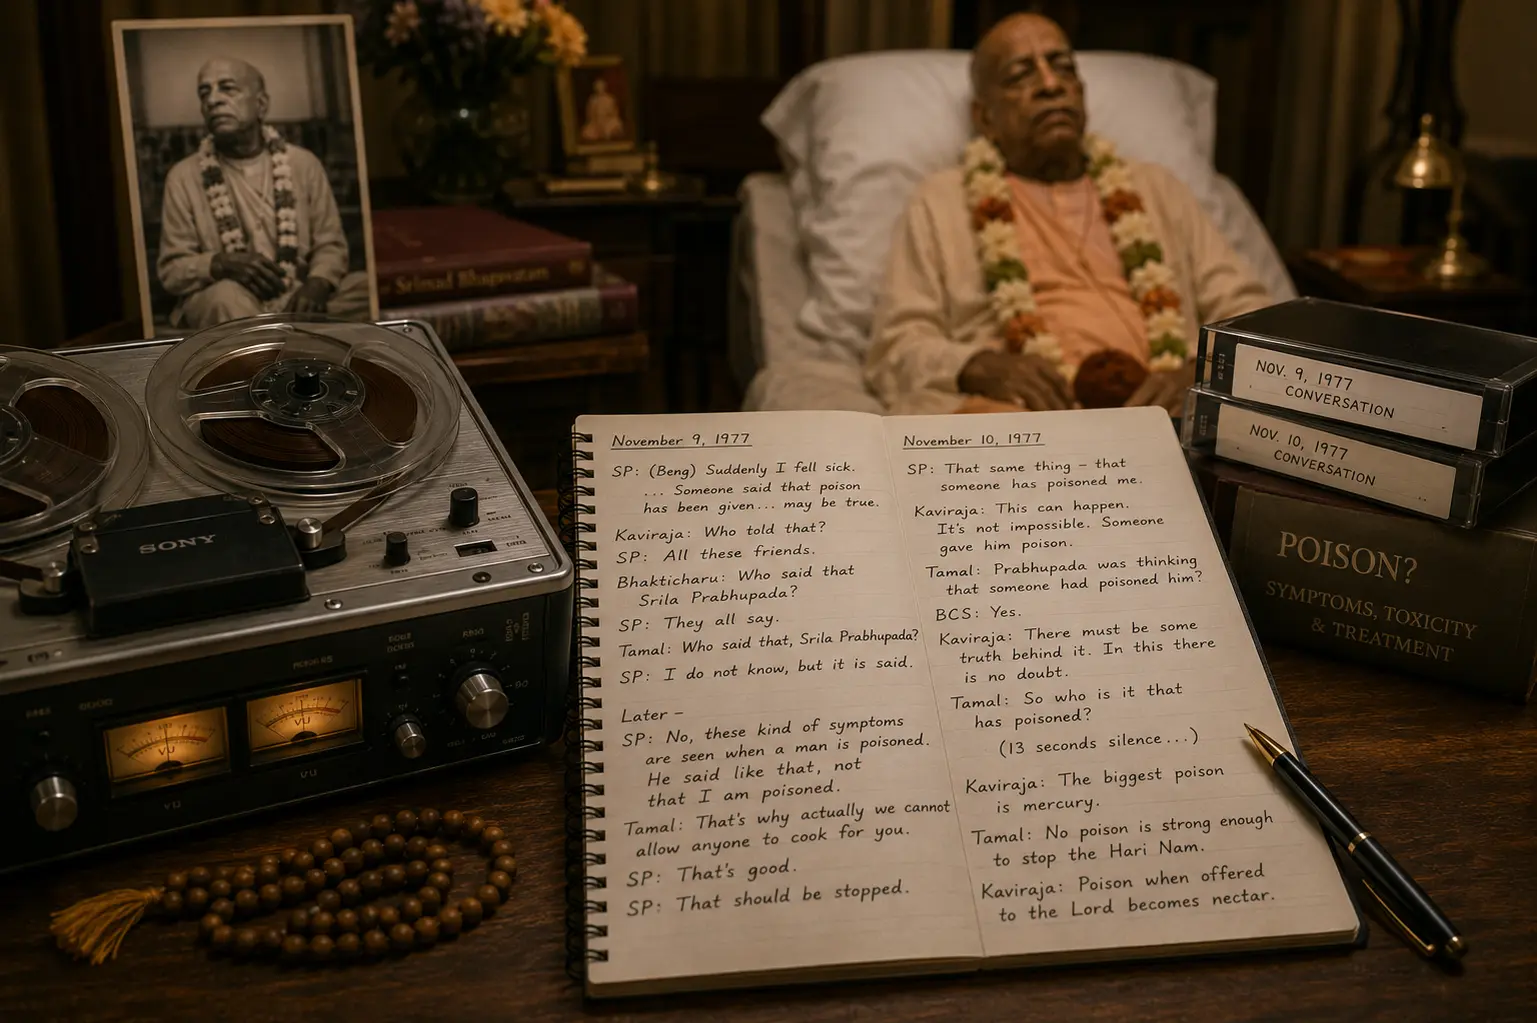 Srimad Bhagavatam
SONY
VU
VU
November 9, 1977
SP: (Beng) Suddenly I fell sick.
... Someone said that poison
has been given... may be true.
Kaviraja: Who told that?
SP: All these friends.
Bhakticharu: Who said that
Srila Prabhupada?
SP: They all say.
Tamal: Who said that, Srila Prabhupada?
SP: I do not know, but it is said.
Later –
SP: No, these kind of symptoms
are seen when a man is poisoned.
He said like that, not
that I am poisoned.
Tamal: That's why actually we cannot
allow anyone to cook for you.
SP: That's good.
SP: That should be stopped.
November 10, 1977
SP: That same thing – that
someone has poisoned me.
Kaviraja: This can happen.
It's not impossible. Someone
gave him poison.
Tamal: Prabhupada was thinking
that someone had poisoned him?
BCS: Yes.
Kaviraja: There must be some
truth behind it. In this there
is no doubt.
Tamal: So who is it that
has poisoned?
(13 seconds silence...)
Kaviraja: The biggest poison
is mercury.
Tamal: No poison is strong enough
to stop the Hari Nam.
Kaviraja: Poison when offered
to the Lord becomes nectar.
NOV. 9, 1977
CONVERSATION
NOV. 10, 1977
CONVERSATION
POISON?
SYMPTOMS, TOXICITY
& TREATMENT